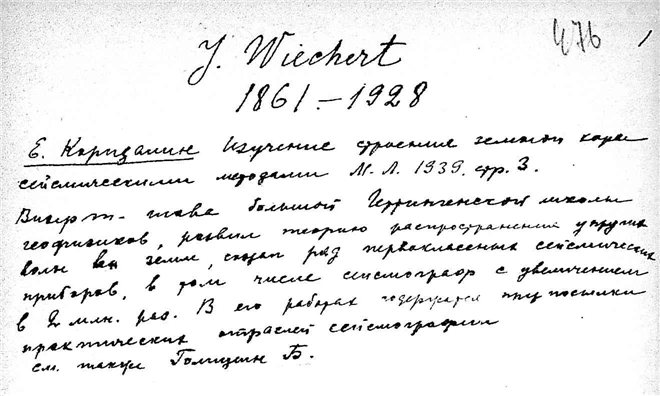 476 1
J. Wiechert
1861–1928
Е. Коридалин Изучение строения земной коры
сейсмическими методами М. Л. 1939. стр. 3.
Вихерт – глава большой Геттингенской школы
геофизиков, развил теорию распространения упругих
волн в земле, создал ряд первоклассных сейсмических
приборов, в том числе сейсмограф с увеличением
в 2 млн. раз. В его работах содержатся предпосылки
практических отраслей сейсмографии
см. также Голицын Б.